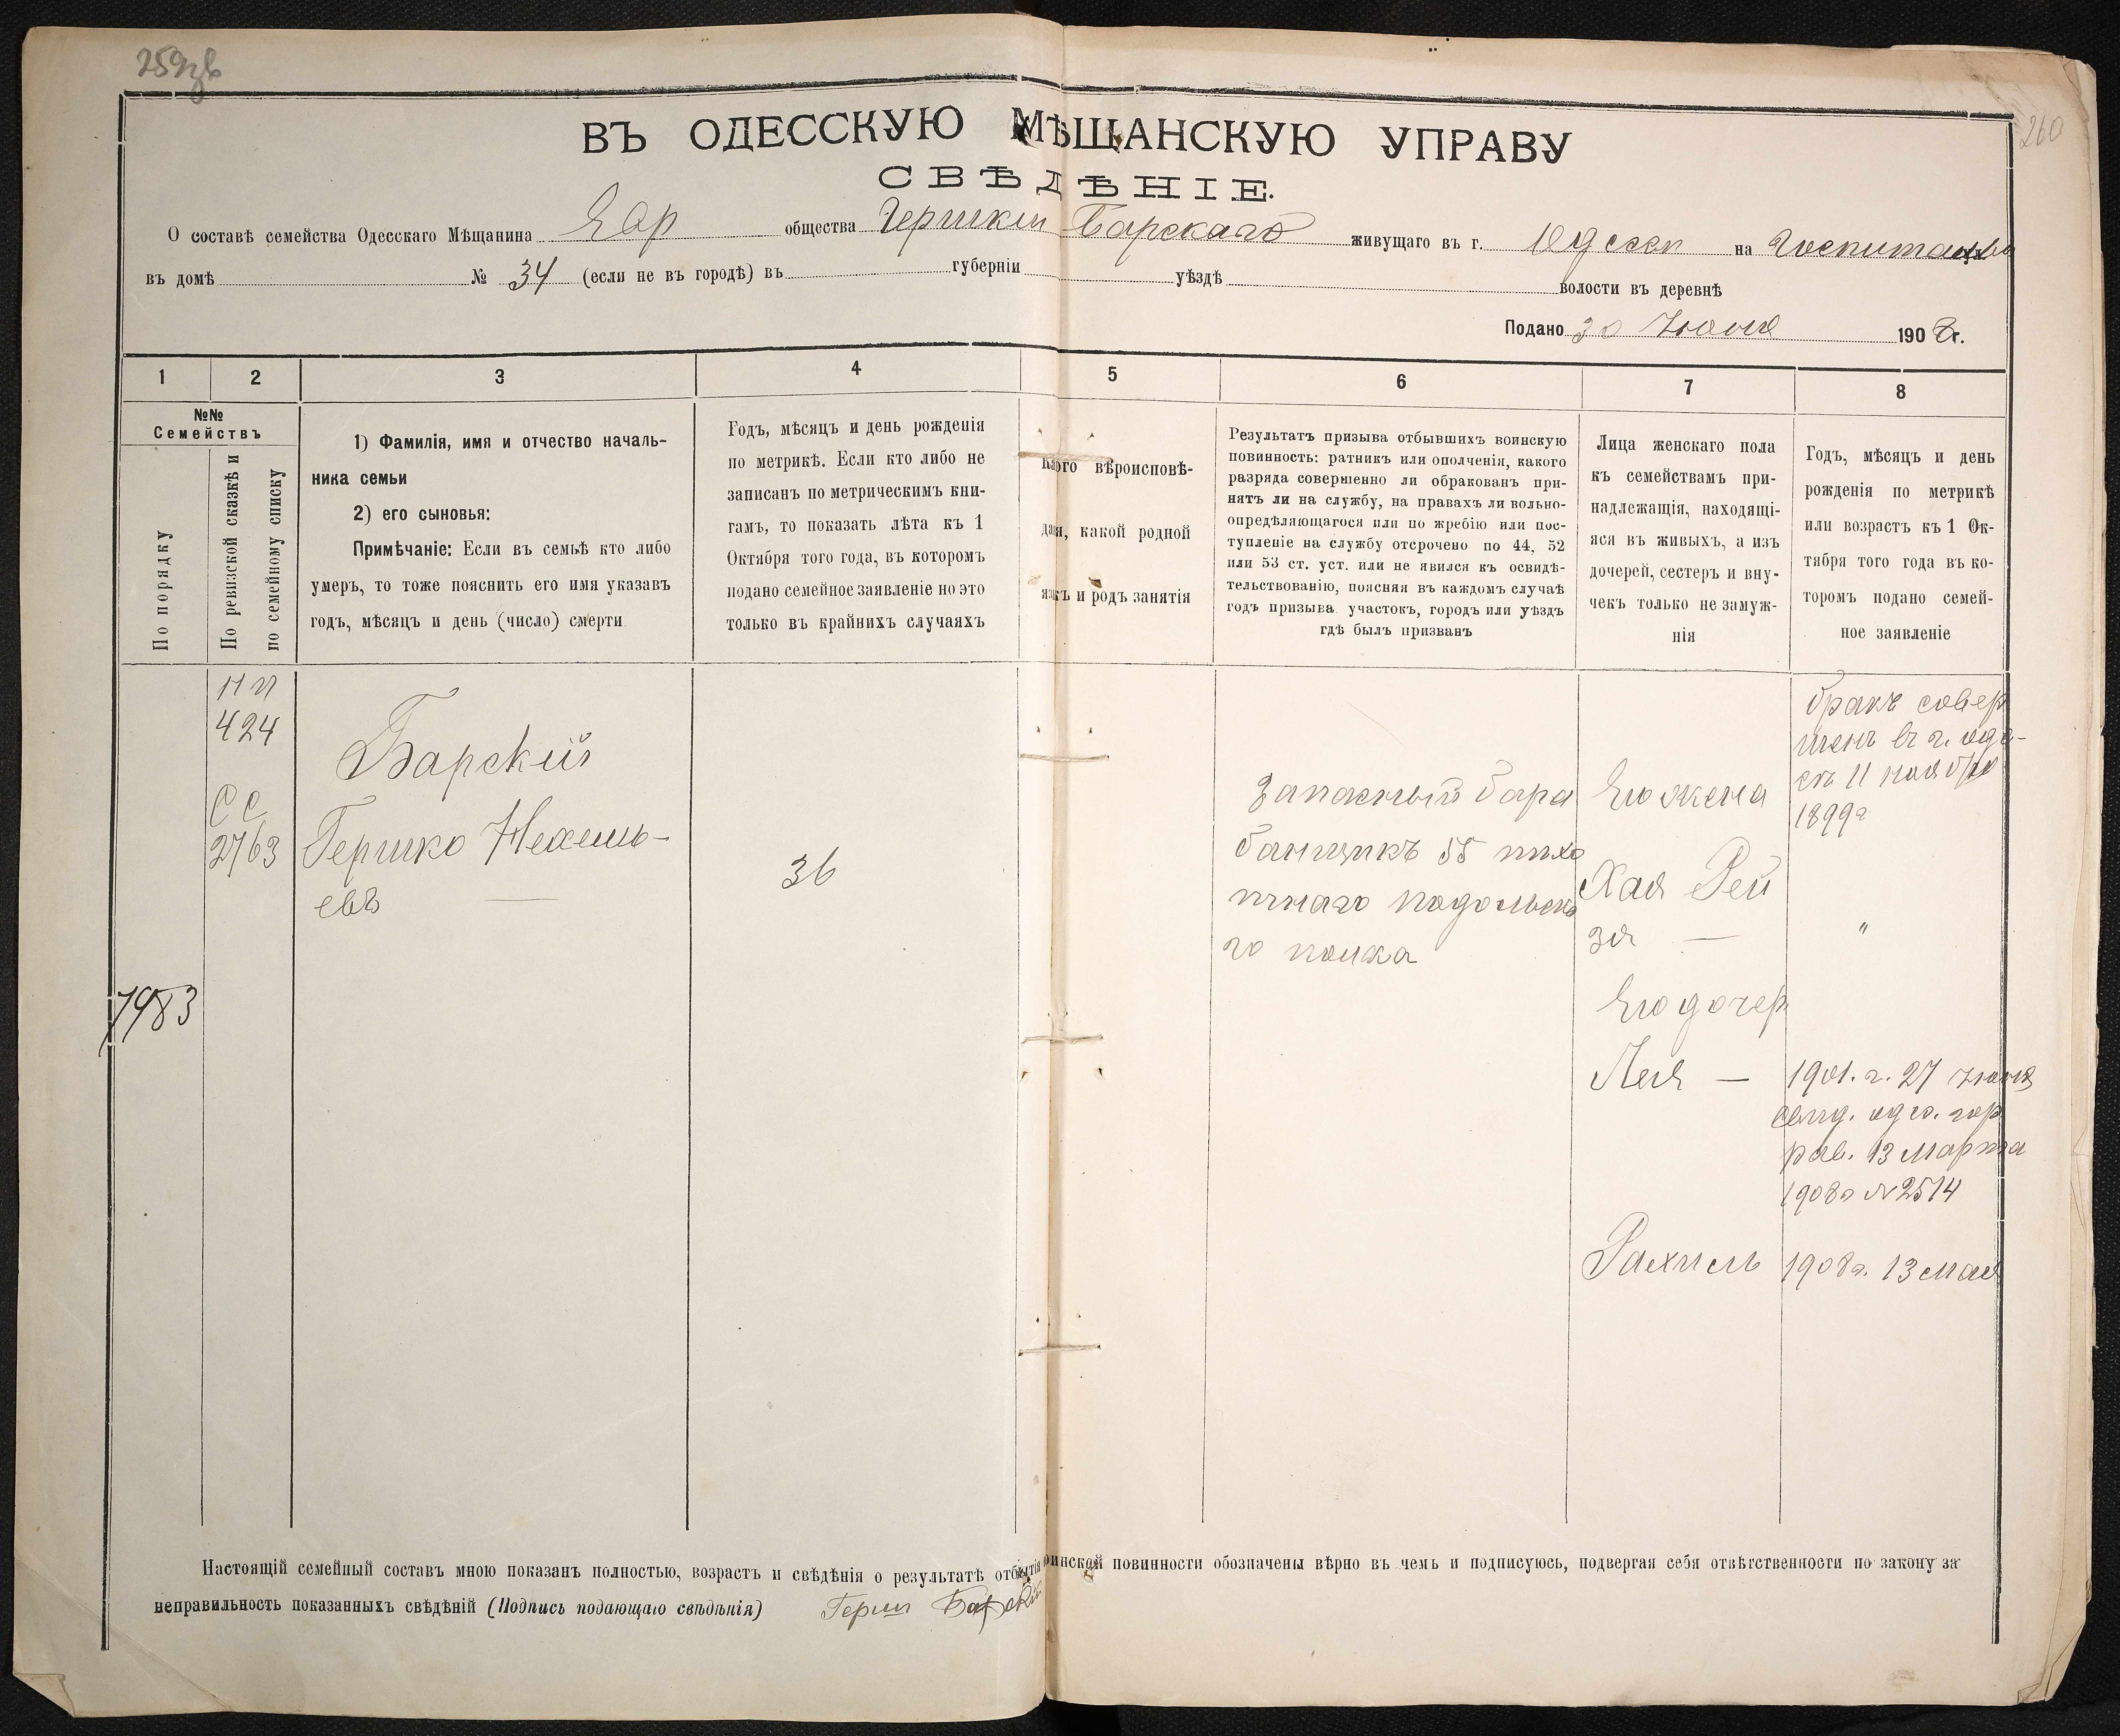 259зв
260
ВЪ ОДЕССКУЮ МѢЩАНСКУЮ УПРАВУ
СВѢДѢНІЕ.
О составѣ семейства Одесскаго Мѣщанина Евр общества Гершки Барскаго живущаго въ г. Одессѣ на
въ домѣ № 34 (если не въ городѣ) въ губерніи уѣздѣ волости въ деревнѣ
Подано 30 Іюня 1908 г.
1 2 3 4 5 6 7 8
№№
Семействъ
По порядку
По ревизской сказкѣ и
по семейному списку
1) Фамилія, имя и отчество началь-
ника семьи
2) его сыновья:
Примѣчаніе: Если въ семьѣ кто либо
умеръ, то тоже пояснить его имя указавъ
годъ, мѣсяцъ и день (число) смерти
Годъ, мѣсяцъ и день рожденія
по метрикѣ. Если кто либо не
записанъ по метрическимъ кни-
гамъ, то показать лѣта къ 1
Октября того года, въ которомъ
подано семейное заявленіе но это
только въ крайнихъ случаяхъ
Какого вѣроисповѣ-
данія, какой родной
языкъ и родъ занятія
Результатъ призыва отбывшихъ воинскую
повинность: ратникъ или ополченія, какого
разряда совершенно ли обракованъ при-
нятъ ли на службу, на правахъ ли вольно-
опредѣляющагося или по жребію или пос-
тупленіе на службу отсрочено по 44, 52
или 53 ст. уст. или не явился къ освидѣ-
тельствованію, поясняя въ каждомъ случаѣ
годъ призыва участокъ, городъ или уѣздъ
гдѣ былъ призванъ
Лица женскаго пола
къ семействамъ при-
надлежащія, находящі-
яся въ живыхъ, а изъ
дочерей, сестеръ и вну-
чекъ только не замуж-
нія
Годъ, мѣсяцъ и день
рожденія по метрикѣ
или возрастъ къ 1 Ок-
тября того года въ ко-
торомъ подано семей-
ное заявленіе
7983
пп
424
СС
2763
Барскій
Гершко Нехемь-
евъ —
36
Запасный бара
банщикъ 55 пѣхо
тнаго подольска
го полка
Его жена
Хая Рей
зя —
Его дочер
Лея —
Рахиль
бракъ совер
шенъ въ г. оде-
съ 11 ноября
1899г
"
1901. г. 27 іюня
свид. одес. гор
рав. 13 марта
1908г №2514
1908г. 13 мая
Настоящій семейный составъ мною показанъ полностью, возрастъ и свѣдѣнія о результатѣ отбытія воинской повинности обозначены вѣрно въ чемъ и подписуюсь, подвергая себя отвѣтственности по закону за
неправильность показанныхъ свѣдѣній (Подпись подающаго свѣдѣнія) Герш Барскій